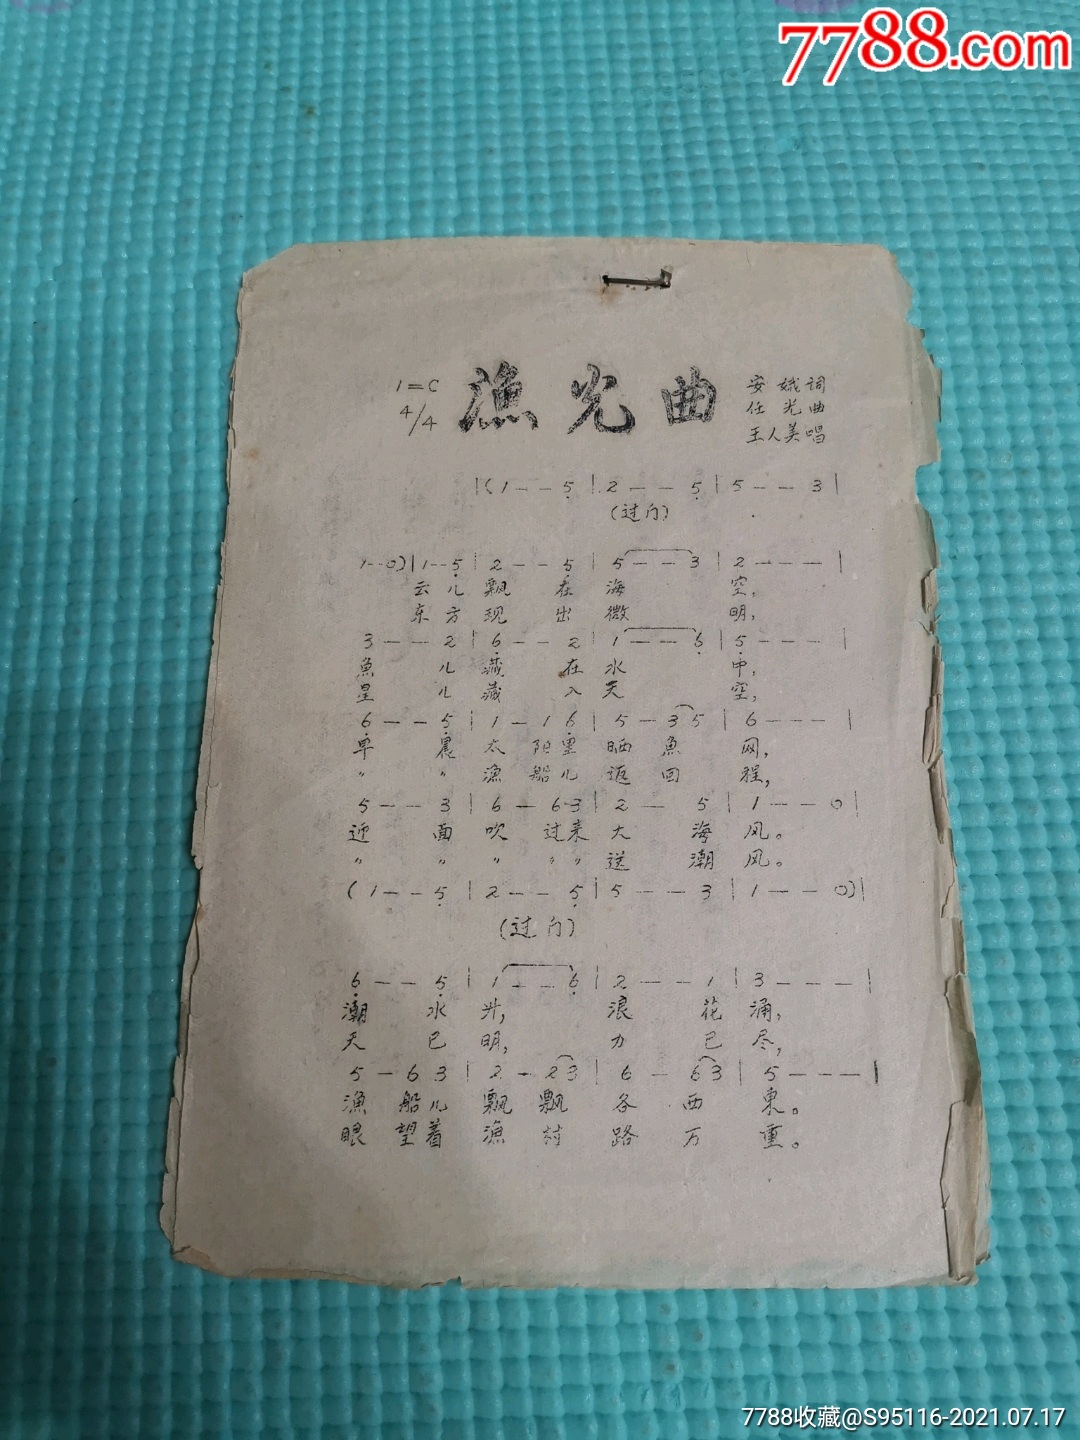 7788.com
1=C
4/4
渔光曲
安娥词
任光曲
王人美唱
|(1--5|2--5|5--3|
(过门)
1--0)|1--5|2--5|5--3|2---|
云儿飘在海空,
东方现出微明,
3--2|6--2|1--6|5---|
魚儿藏在水中,
星儿藏入天空,
6--5|1-16|5-35|6---|
早晨太阳里晒魚网,
〃〃渔船儿返回程,
5--3|6-63|2--5|1---0|
迎面吹过来大海风。
〃〃〃〃〃送潮风。
(1--5|2--5|5--3|1---0)|
(过门)
6--5|1--6|2--1|3---|
潮水升,浪花涌,
天已明,力已尽,
5-63|2-23|6-63|5---|
渔船儿飘飘各西東。
眼望着渔村路万重。
7788收藏@S95116-2021.07.17